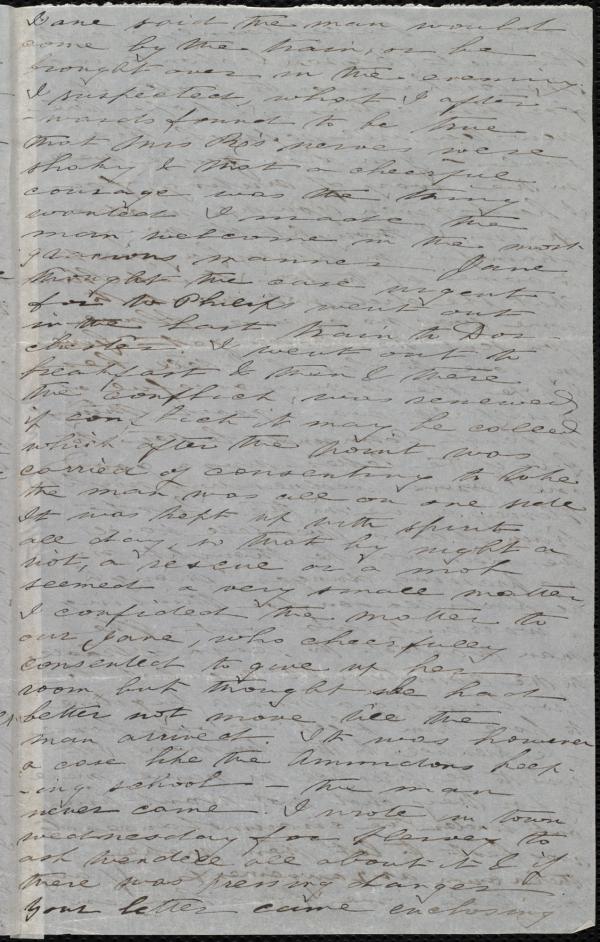 Jane said the man would
come by the train, or be
brought over in the evening.
I suspected, what I after
-wards found to be true
that Mrs R's nerves were
shaky & that a cheerful
courage was the thing
wanted. I made the
man welcome in the most
gracious manner. Jane
thought the case urgent
for to Philip went out
in the last train to Dor-
chester. I went out to
breakfast & then & there
the conflict was renewed,
if conflict it may be called
which after the point was
carried of consenting to take
the man was all on one side
It was kept up with spirit
all day, so that by night a
riot, a rescue or a mob
seemed a very small matter.
I confided the matter to
our Jane, who cheerfully
consented to give up her
room but thought she had
better not move till the
man arrived. It was however
a case like the Ammidons keep-
-ing school – the man
never came. I wrote in town
Wednesday for to
ask Wendell all about it & if
there was pressing danger.
Your letter came enclosing